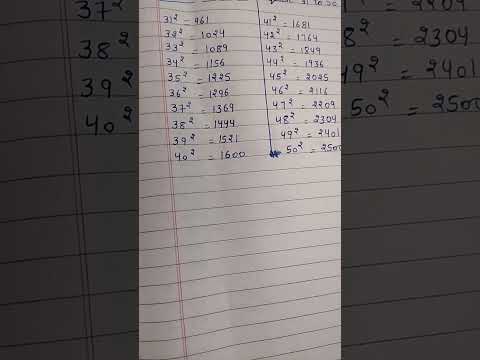 31² = 961
32² = 1024
33² = 1089
34² = 1156
35² = 1225
36² = 1296
37² = 1369
38² = 1444
39² = 1521
40² = 1600
41² = 1681
42² = 1764
43² = 1849
44² = 1936
45² = 2025
46² = 2116
47² = 2209
48² = 2304
49² = 2401
50² = 2500
37²
38²
39²
40²
= 2209
= 2304
49² = 2401
50² = 2500